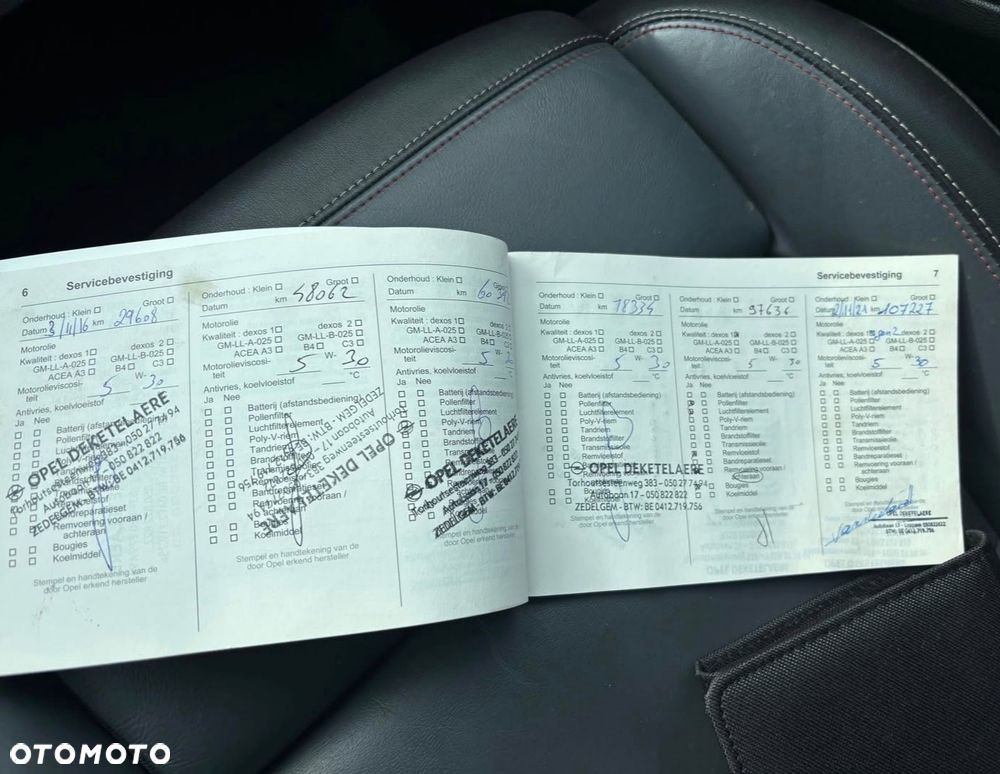 6 Servicebevestiging
Onderhoud : Klein Groot
Datum 3/11/16 km 29608
Motorolie
Kwaliteit : dexos 1 dexos 2
GM-LL-A-025 GM-LL-B-025
ACEA A3 B4 C3
Motorolieviscosi-
teit 5 W- 30
Antivries, koelvloeistof
Ja Nee
Batterij (afstandsbediening)
Pollenfilter
OPEL DEKETELAERE
Autobaan 17 - 050 822 822
ZEDELGEM - BTW: BE 0412.719.756
Bandreparatieset
Remvoering vooraan /
achteraan
Bougies
Koelmiddel
Stempel en handtekening van de
door Opel erkend hersteller
Onderhoud : Klein Groot
Datum km 48062
Motorolie
Kwaliteit : dexos 1 dexos 2
GM-LL-A-025 GM-LL-B-025
ACEA A3 B4 C3
Motorolieviscosi-
teit 5 W- 30
Antivries, koelvloeistof °C
Ja Nee
Batterij (afstandsbediening)
Pollenfilter
Luchtfilterelement
Poly-V-riem
Tandriem
Brandstoffilter
OPEL DEKETELAERE
Koelmiddel
Stempel en handtekening van de
door Opel erkend hersteller
Onderhoud : Klein Groot
Datum km
Motorolie
Kwaliteit : dexos 1 dexos 2
GM-LL-A-025 GM-LL-B-025
ACEA A3 B4 C3
Motorolieviscosi-
teit 5 W-
Antivries, koelvloeistof °C
Ja Nee
Batterij (afstandsbediening)
Pollenfilter
Luchtfilterelement
Poly-V-riem
OPEL DEKETELAERE
Autobaan 17 - 050 822 822
ZEDELGEM - BTW: BE 0412.719.756
Koelmiddel
Stempel en handtekening van de
door Opel erkend hersteller
Servicebevestiging 7
Onderhoud : Klein Groot
Datum km 78334
Motorolie
Kwaliteit : dexos 1 dexos 2
GM-LL-A-025 GM-LL-B-025
ACEA A3 B4 C3
Motorolieviscosi-
teit 5 W- 30
Antivries, koelvloeistof °C
Ja Nee
Batterij (afstandsbediening)
Pollenfilter
Luchtfilterelement
Poly-V-riem
Tandriem
Brandstoffilter
Transmissieolie
Bandreparatieset
OPEL DEKETELAERE
Torhoutsesteenweg 383 - 050 27 74 94
Autobaan 17 - 050 822 822
ZEDELGEM - BTW: BE 0412.719.756
Stempel en handtekening van de
door Opel erkend hersteller
Onderhoud : Klein Groot
Datum km 97636
Motorolie
Kwaliteit : dexos 1 dexos 2
GM-LL-A-025 GM-LL-B-025
ACEA A3 B4 C3
Motorolieviscosi-
teit 5 W- 30
Antivries, koelvloeistof °C
Ja Nee
Batterij (afstandsbediening)
Pollenfilter
Luchtfilterelement
Poly-V-riem
Tandriem
Brandstoffilter
Transmissieolie
Bandreparatieset
Remvoering vooraan /
achteraan
Bougies
Koelmiddel
Stempel en handtekening van de
door Opel erkend hersteller
Onderhoud : Klein Groot
Datum 2/11/21 km 107227
Motorolie
Kwaliteit : dexos 1 dexos 2
GM-LL-A-025 GM-LL-B-025
ACEA A3 B4 C3
Motorolieviscosi-
teit 5 W- 30
Antivries, koelvloeistof °C
Ja Nee
Batterij (afstandsbediening)
Pollenfilter
Luchtfilterelement
Poly-V-riem
Tandriem
Brandstoffilter
Transmissieolie
Bandreparatieset
Remvoering vooraan /
achteraan
Bougies
Koelmiddel
OPEL DEKETELAERE
Autobaan 17 - Loppem 050822822
BTW: BE 0412.719.756
OTOMOTO